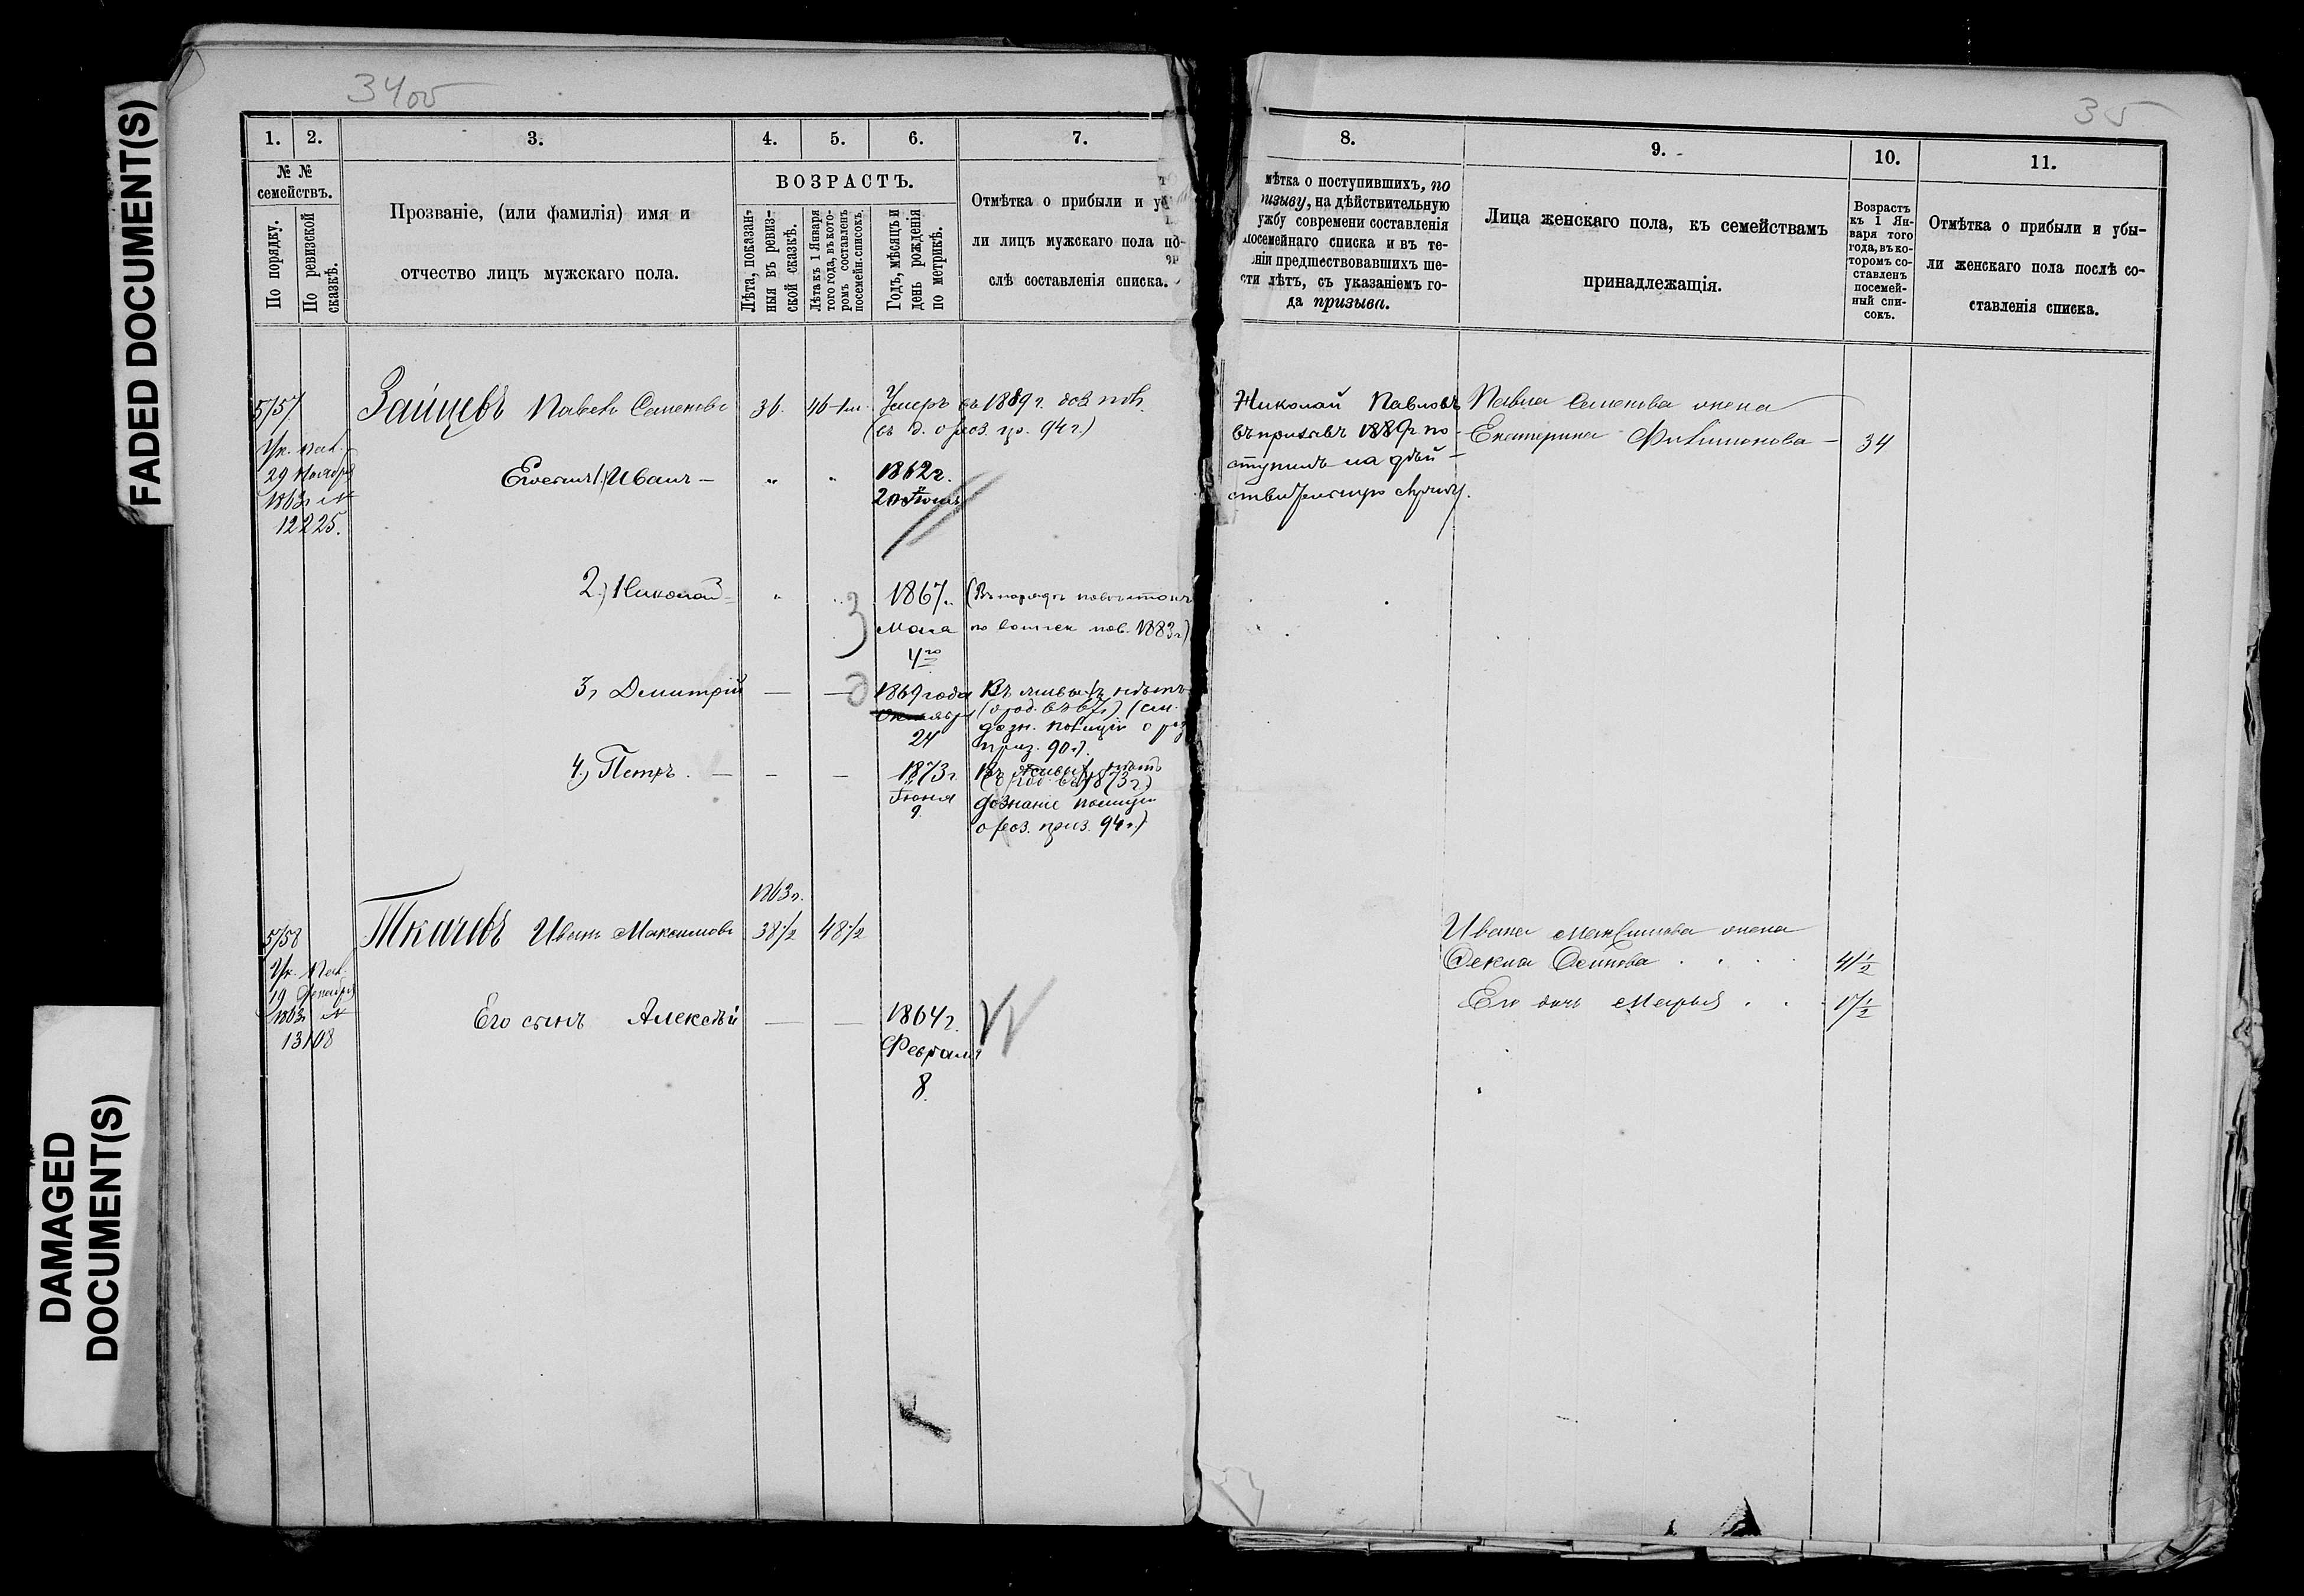 FADED DOCUMENT(S)
DAMAGED
DOCUMENT(S)
34об
1.
2.
3.
4.
5.
6.
7.
№ №
семействъ.
По порядку.
По ревизской
сказкѣ.
Прозваніе, (или фамилія) имя и
отчество лицъ мужскаго пола.
ВОЗРАСТЪ.
Лѣта, показан-
ныя въ ревиз-
ской сказкѣ.
Лѣта къ 1 Января
того года, въ кото-
ромъ составленъ
посемейн. списокъ.
Годъ, мѣсяцъ и
день рожденія
по метрикѣ.
Отмѣтка о прибыли и уб
ли лицъ мужскаго пола по-
слѣ составленія списка.
557.
Ук.
29 Ноября
1863 г. №
12225.
Зайцевъ Павелъ Семеновъ
36.
46
Умеръ въ 1889 г.
(въ д. о роз. пр. 94 г.)
Его сынъ 1.) Иванъ —
"
"
1862 г.
20 Іюля
2.) Николай
"
"
3
1867 г.
Мая
4го
по воинск. пов. 1883 г.)
3, Дмитрій
—
—
1869 года
Октября
24
Въ живыхъ нѣтъ
(о род. въ 67 г.) (см.
дозн. полиціи о роз.
приз. 90 г.).
4.) Петръ. —
—
—
1873 г.
Іюня
9.
Въ живыхъ нѣтъ
(о род. въ 1873 г.)
дознаніе полиціи
о роз. приз. 94 г.)
558
Ук.
19 Декабря
1863 г. №
13108
Ткачевъ Иванъ Максимовъ
1863 г.
38½
48½
Его сынъ Алексѣй
—
—
1864 г.
Февраля
8.
35
8.
9.
10.
11.
мѣтка о поступившихъ, по
изыву, на дѣйствительную
ужбу современи составленія
посемейнаго списка и въ те-
ніи предшествовавшихъ ше-
сти лѣтъ, съ указаніемъ го-
да призыва.
Лица женскаго пола, къ семействамъ
принадлежащія.
Возрастъ
къ 1 Ян-
варя того
года, въ ко-
торомъ со-
ставленъ
посемей-
ный спи-
сокъ.
Отмѣтка о прибыли и убы-
ли женскаго пола послѣ со-
ставленія списка.
Николай Павловъ
въ призывъ 1889 г. по-
ступилъ на дѣй-
ствительную службу.
Павла Семенова жена
Екатерина Филимонова —
34
Ивана Максимова жена
Фекла Осипова . . . .
41½
Его дочь Марья . . .
17½